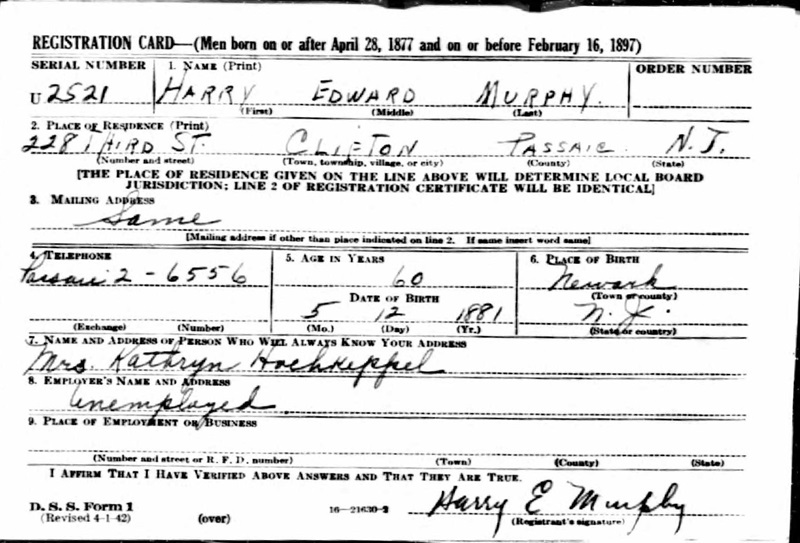 REGISTRATION CARD—(Men born on or after April 28, 1877 and on or before February 16, 1897)
SERIAL NUMBER 1. NAME (Print) ORDER NUMBER
U 2521 HARRY EDWARD MURPHY.
(First) (Middle) (Last)
2. PLACE OF RESIDENCE (Print)
228 THIRD ST. CLIFTON PASSAIC N.J.
(Number and street) (Town, township, village, or city) (County) (State)
[THE PLACE OF RESIDENCE GIVEN ON THE LINE ABOVE WILL DETERMINE LOCAL BOARD
JURISDICTION; LINE 2 OF REGISTRATION CERTIFICATE WILL BE IDENTICAL]
3. MAILING ADDRESS
Same
[Mailing address if other than place indicated on line 2. If same insert word same]
4. TELEPHONE 5. AGE IN YEARS 6. PLACE OF BIRTH
Passaic 2-6556 60 Newark
DATE OF BIRTH (Town or county)
5 12 1881 N.J.
(Exchange) (Number) (Mo.) (Day) (Yr.) (State or country)
7. NAME AND ADDRESS OF PERSON WHO WILL ALWAYS KNOW YOUR ADDRESS
Mrs. Kathryn Hochkeppel
8. EMPLOYER'S NAME AND ADDRESS
Unemployed
9. PLACE OF EMPLOYMENT OR BUSINESS
(Number and street or R. F. D. number) (Town) (County) (State)
I AFFIRM THAT I HAVE VERIFIED ABOVE ANSWERS AND THAT THEY ARE TRUE.
D. S. S. Form 1
(Revised 4-1-42) (over) 16—21630-2 Harry E Murphy
(Registrant's signature)